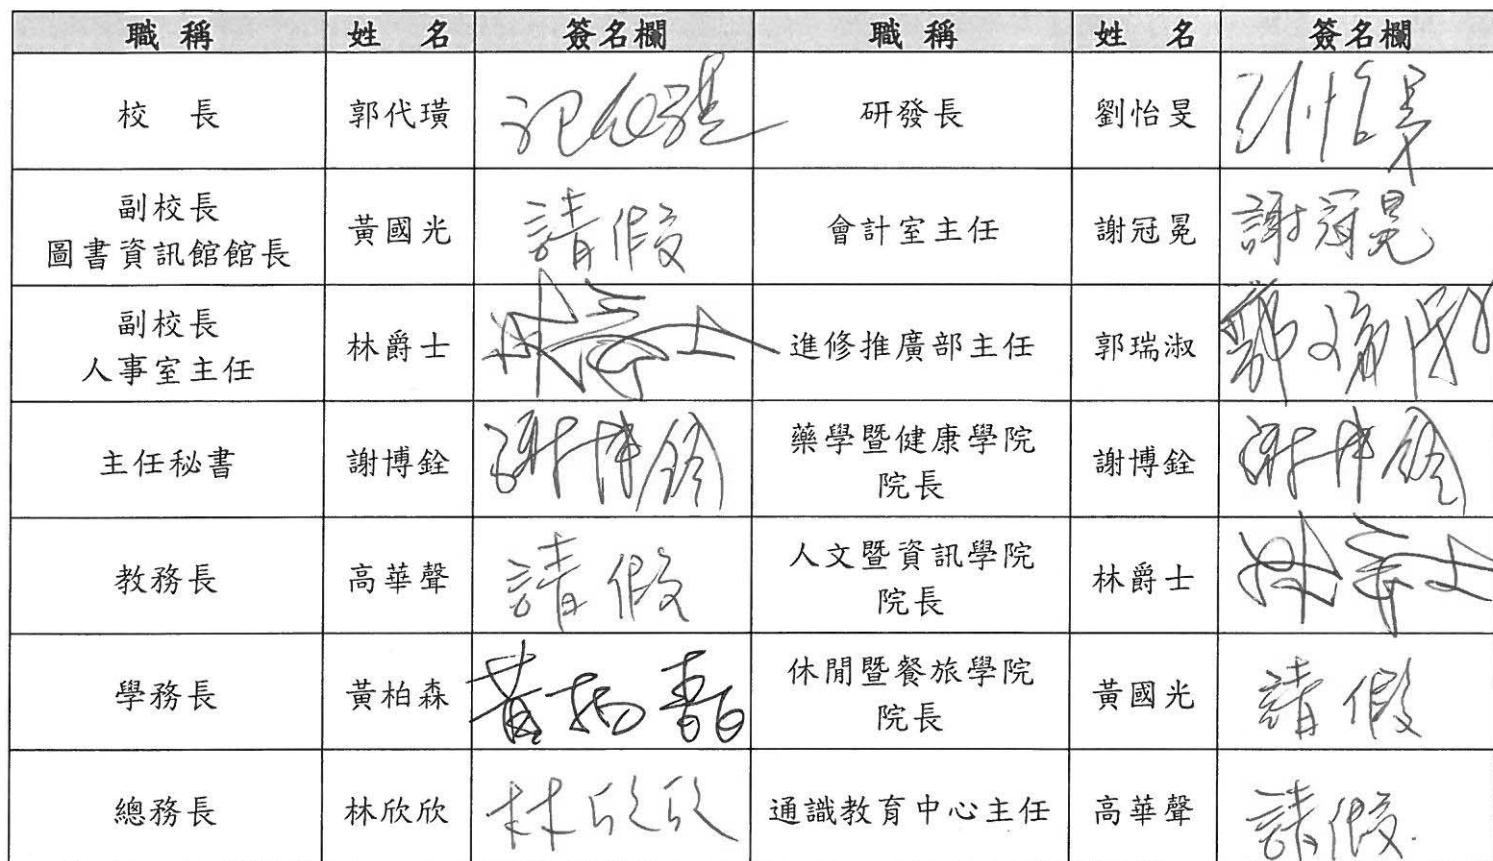 職 稱 姓 名 簽名欄 職 稱 姓 名 簽名欄
校 長 郭代璜 研發長 劉怡旻 刘怡旻
副校長
圖書資訊館館長 黃國光 請假 會計室主任 謝冠冕 謝冠冕
副校長
人事室主任 林爵士 林爵士 進修推廣部主任 郭瑞淑 郭瑞淑
主任秘書 謝博銓 謝博銓 藥學暨健康學院
院長 謝博銓 謝博銓
教務長 高華聲 請假 人文暨資訊學院
院長 林爵士 林爵士
學務長 黃柏森 休閒暨餐旅學院
院長 黃國光 請假
總務長 林欣欣 林欣欣 通識教育中心主任 高華聲 請假